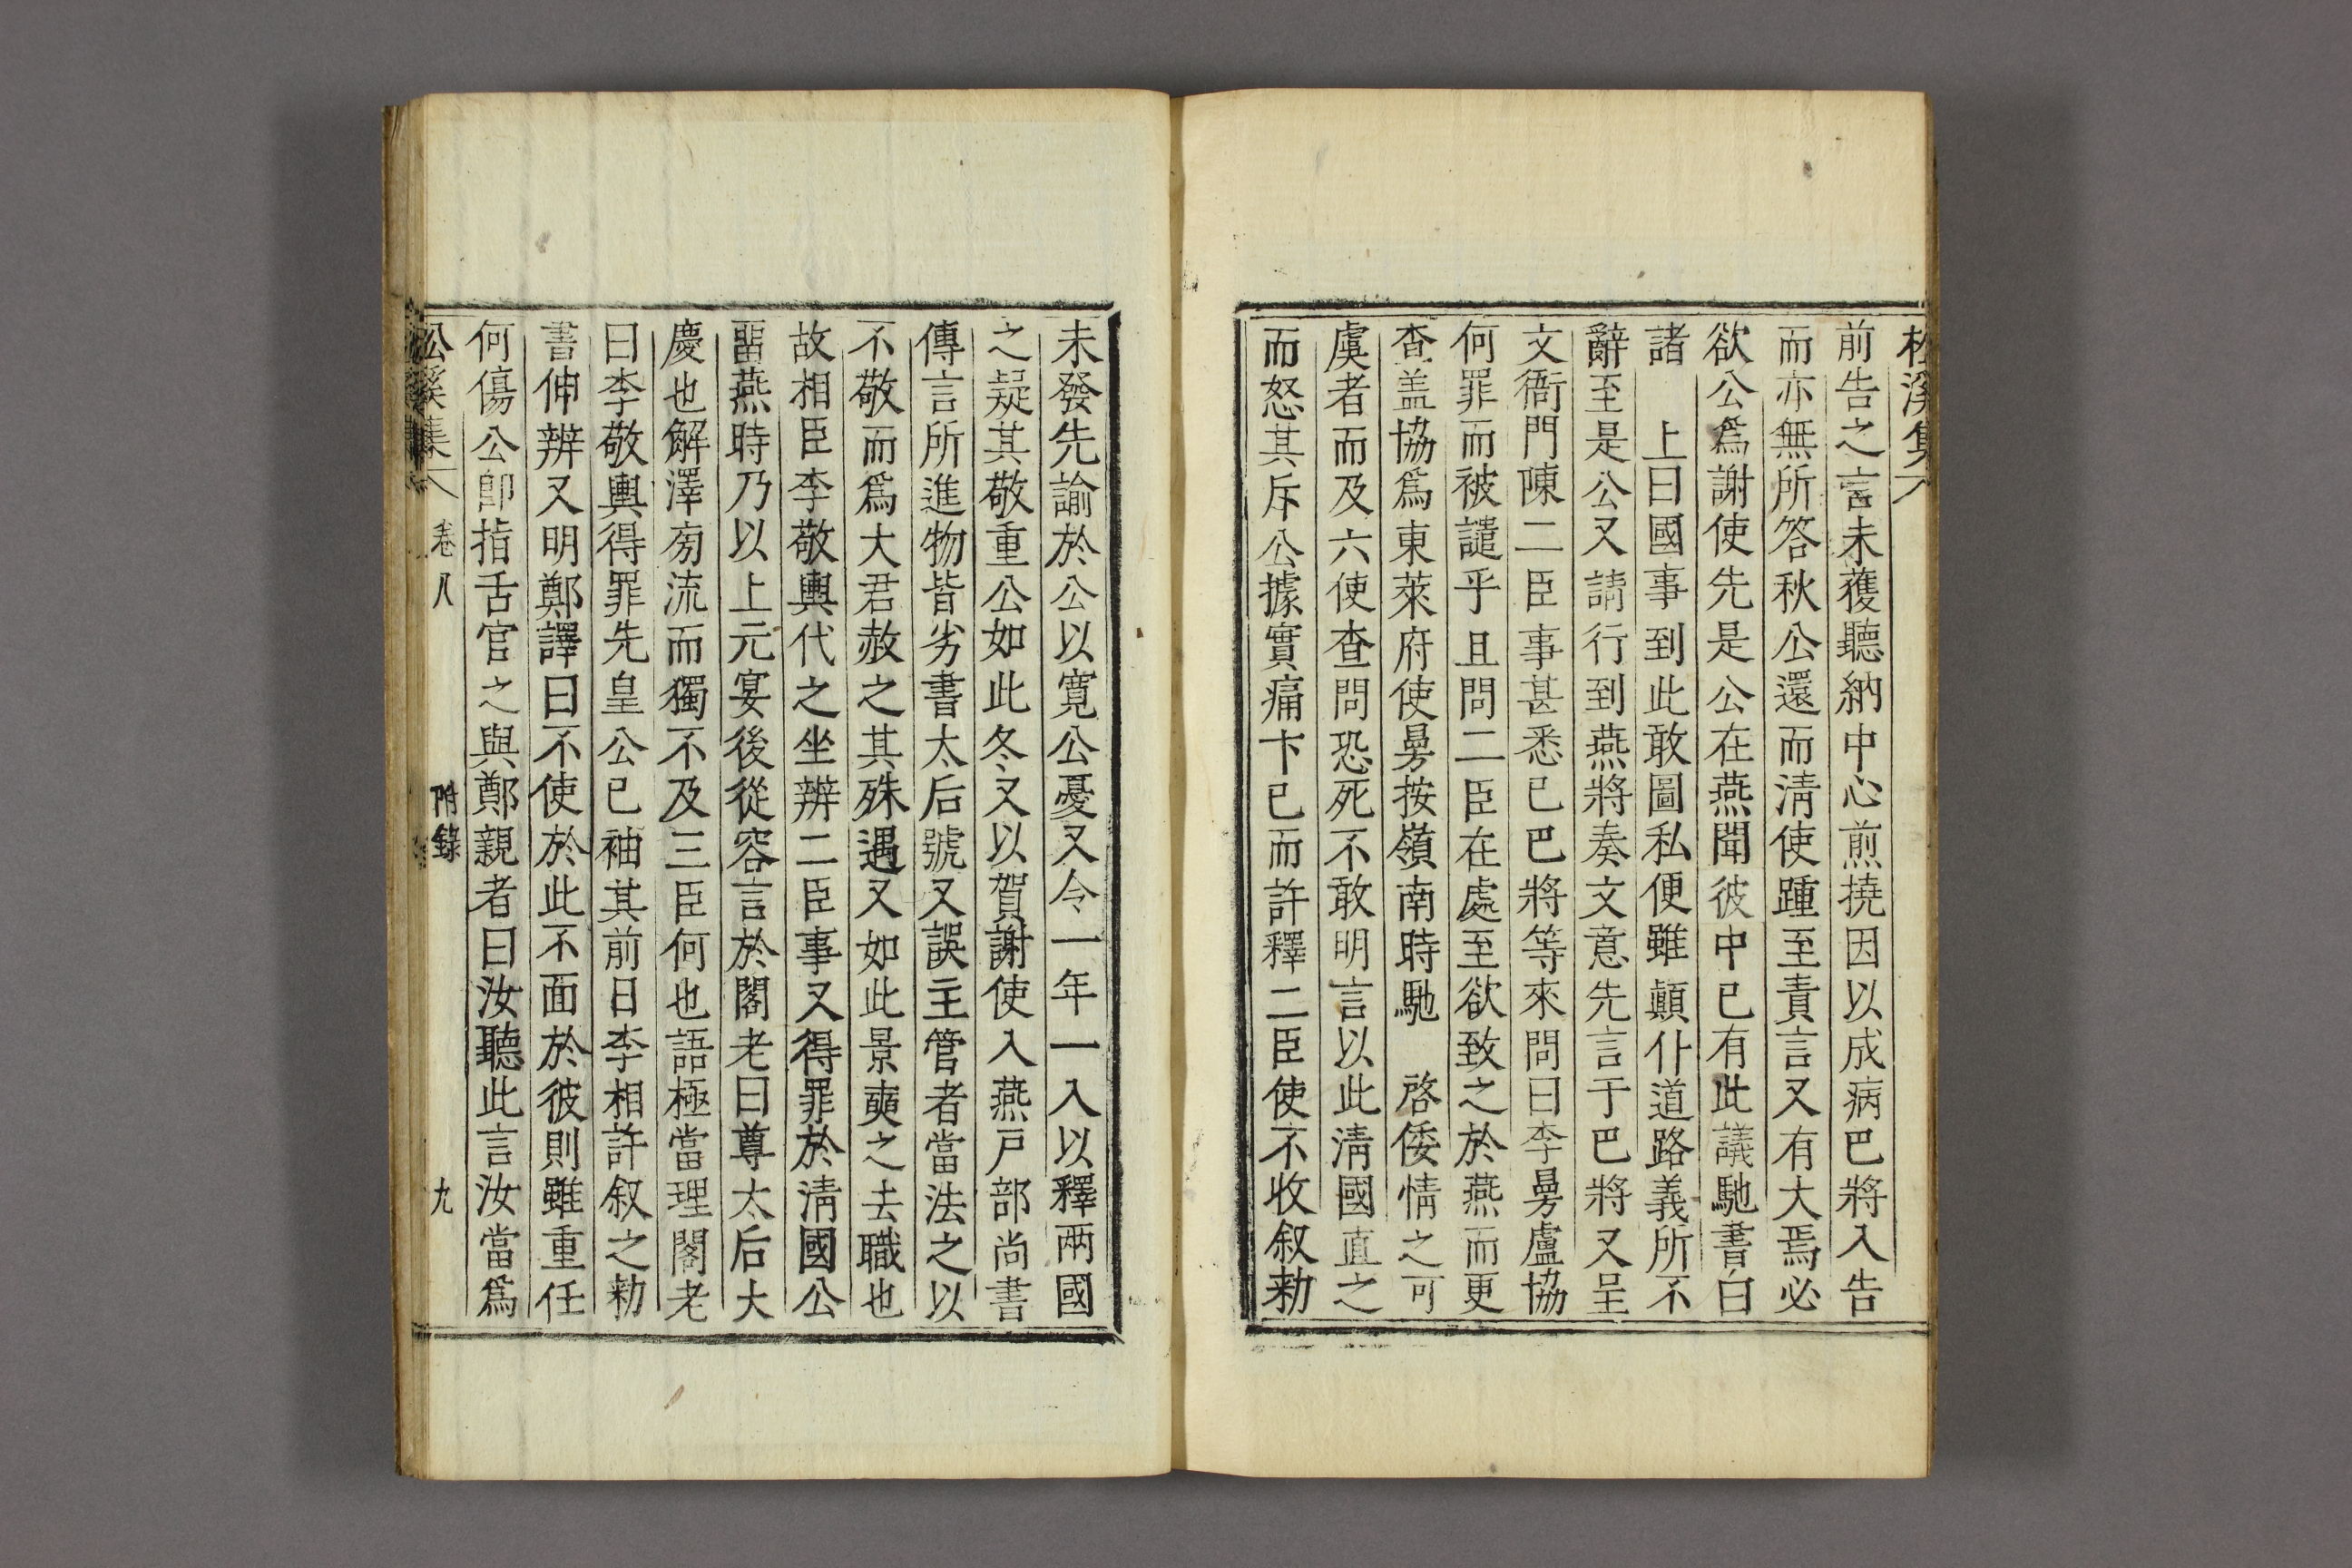 松溪集
前告之言未蒦聽納中心煎撓因以成病巴將入告
而亦無所答秋公還而淸使踵至責言又有大焉必
欲公爲謝使先是公在燕聞彼中已有此議馳書白
諸　上曰國事到此敢圖私便雖顚仆道路義所不
辭至是公又請行到燕將奏文意先言于巴將又呈
文衙門陳二臣事甚悉已巴將等來問曰李曼盧協
何罪而被譴乎且問二臣在處至欲致之於燕而更
查盖協爲東萊府使曼按嶺南時馳　啓倭情之可
虞者而及六使查問恐死不敢明言以此淸國直之
而怒其斥公據實痛卞已而許釋二臣使不收叙勑
未發先諭於公以寬公憂又今一年一入以釋兩國
之疑其敬重公如此冬又以賀謝使入燕戶部尙書
傳言所進物皆劣書太后號又誤主管者當法之以
不敬而爲大君赦之其殊遇又如此景奭之去職也
故相臣李敬輿代之坐辨二臣事又得罪於淸國公
畱燕時乃以上元宴後從容言於閣老曰尊太后大
慶也解澤旁流而獨不及三臣何也語極當理閣老
曰李敬輿得罪先皇公已袖其前日李相許叙之勑
書伸辨又明鄭譯曰不使於此不面於彼則雖重任
何傷公卽指舌官之與鄭親者曰汝聽此言汝當爲
松溪集　卷八　附錄　九